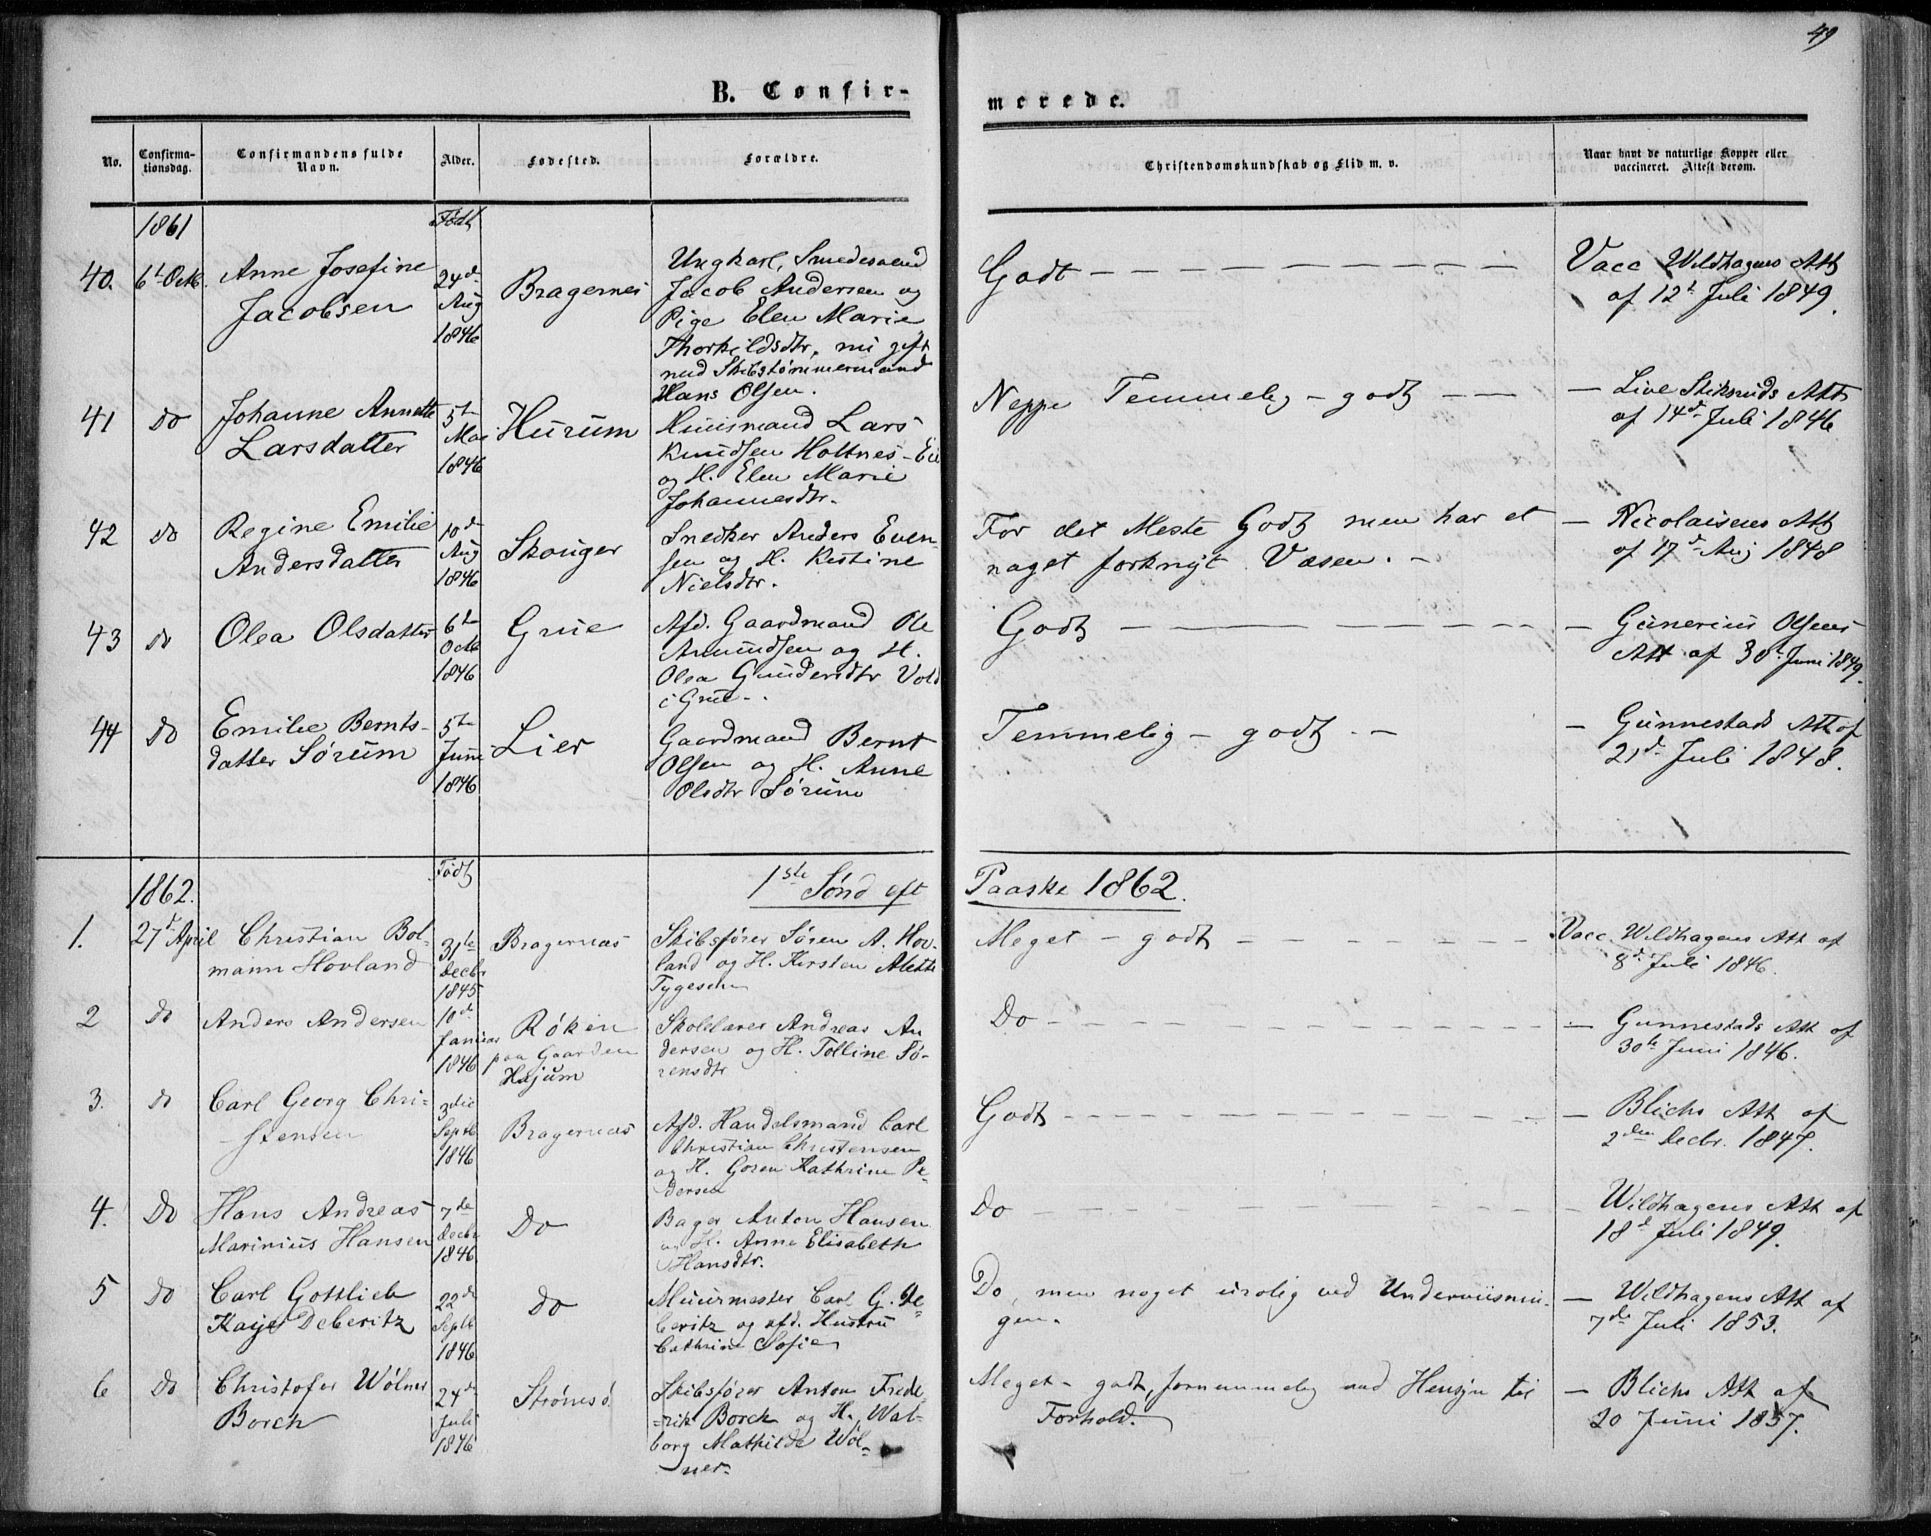 49
B. Confir-
merede.
No.
Confirma-
tionsdag.
Confirmandens fulde
Navn.
Alder.
Fødested.
Forældre.
Christendomskundskab og Flid m. v.
Naar havt de naturlige Kopper eller
vaccineret. Attest derom.
1861
Født
40.
6t Octb.
Anne Josefine
Jacobsen
24d
Aug
1846
Bragernes
Ungkarl, Smedesvend
Jacob Andersen og
Pige Elen Marie
Thorkildsdtr, nu gift
med Skibstømmermand
Hans Olsen.
Godt
Vacc Wildhagens Att
af 12t Juli 1849.
41
Do
Johanne Annette
Larsdatter
5te
Mai
1846
Hurum
Huusmand Lars
Knudsen Holtnes-Eie
og H. Elen Marie
Johannesdtr.
Neppe Temmelig - godt
- Live Stiksruds Att
af 14d Juli 1846
42
Do
Regine Emilie
Andersdatter
10d
Aug
1846
Skouger
Snedker Anders Even-
sen og H. Kistine
Nielsdtr.
For det Meste Godt men har et
noget forknyt Væsen. -
- Nicolaisens Att
af 17d Aug 1848
43
Do
Olea Olsdatter
6te
Octb
1846
Grue
Afd. Gaardmand Ole
Amundsen og H.
Olea Gundersdtr Vold
i Grue.
Godt
- Gunerius Olsens
Att af 30t Juni 1849.
44
Do
Emilie Bernts-
datter Sørum
5te
Juni
1846
Lier
Gaardmand Bernt
Olsen og H. Anne
Olsdtr Sørum
Temmelig - godt - -
- Gunnestads Att af
21d Juli 1848.
1862.
Født
1ste Sønd eft
Paaske 1862.
1.
27d April
Christian Bol-
mann Hovland
31te
Decbr
1845
Bragernæs
Skibsfører Søren A. Hov-
land og H. Kirsten Alette
Tygesen
Meget - godt
Vacc. Wildhagens Att af
8d Juli 1846.
2
Do
Anders Andersen
10de
Januar
1846
Røken
paa Gaarden
Højum
Skolelærer Andreas An
dersen og H. Tolline Sø-
rensdtr
Do
- Gunnestads Att af
30te Juni 1846.
3.
Do
Carl Georg Chri-
stensen
3die
Septb
1846
Bragernæs
Afd. Handelsmand Carl
Christian Christensen
og H. Goren Kathrine Pe-
dersen
Godt
- Blichs Att af
2den Decbr. 1847.
4.
Do
Hans Andreas
Marinius Hansen
7de
Decbr
1846
Do
Bager Anton Hansen
og H. Anne Elisabeth
Hansdtr.
Do
- Wildhagens Att af
18d Juli 1849.
5
Do
Carl Gottlieb
Kaye Deberitz
22d
Septb
1846
Do
Muurmester Carl G. De-
beritz og afd. Hustru
Cathrine Sofie
Do, men noget urolig ved Underviisnin-
gen.
- Wildhagens Att af
7de Juli 1853.
6
Do
Christofer Wølner
Borch
24d
Juli
1846
Strømsø
Skibsfører Anton Frede
-rik Borch og H. Wal-
borg Mathilde Wøl-
ner.
Meget - godt, fornemmelig med Hensyn til
Forhold.
- Blichs Att af
20 Juni 1857.